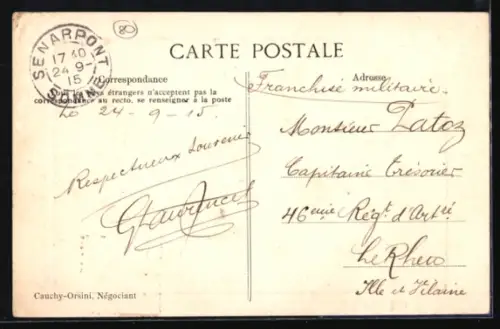 80
SENARPONT
17 40
24 -9
15
SOMME
CARTE POSTALE
Correspondance
Adresse
étrangers n'acceptent pas la
correspondance au recto. se renseigner à la poste
Le 24-9-15.
Respectueux Souvenir
Franchise militaire.
Monsieur Patoz
Capitaine trésorier
46ème Régt d'Artie
Le Rheu
Ille et Vilaine
Cauchy-Orsini, Négociant